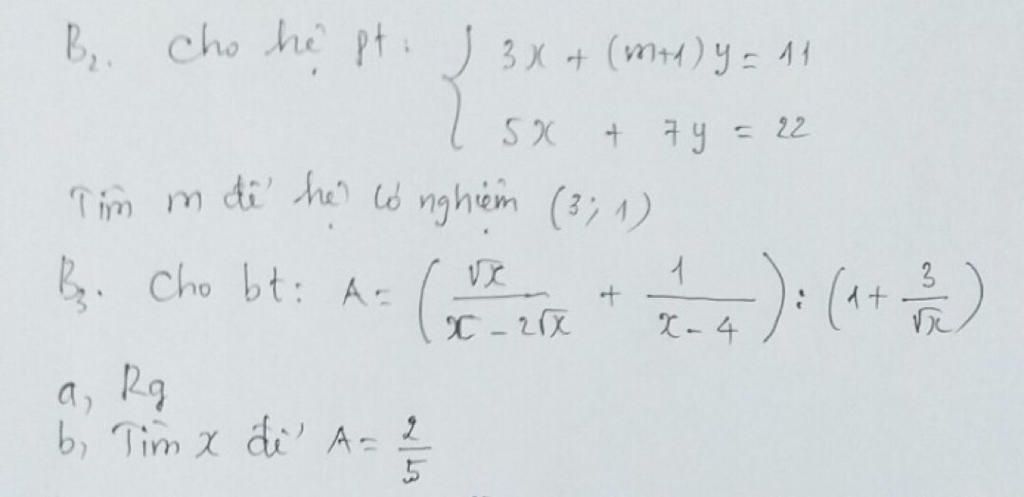 B₂. Cho hệ pt: { 3x + (m+1)y = 11
5x + 7y = 22
Tìm m để hệ có nghiệm (3; 1)
B₃. Cho bt: A = (√x/(x - 2√x) + 1/(x - 4)) : (1 + 3/√x)
a, Rg
b, Tìm x để A = 2/5